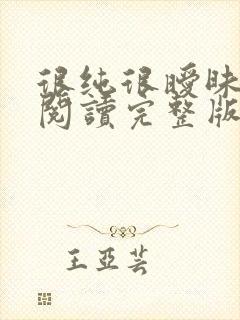 很纯很曖昧
閱讀完整版
王亞芸